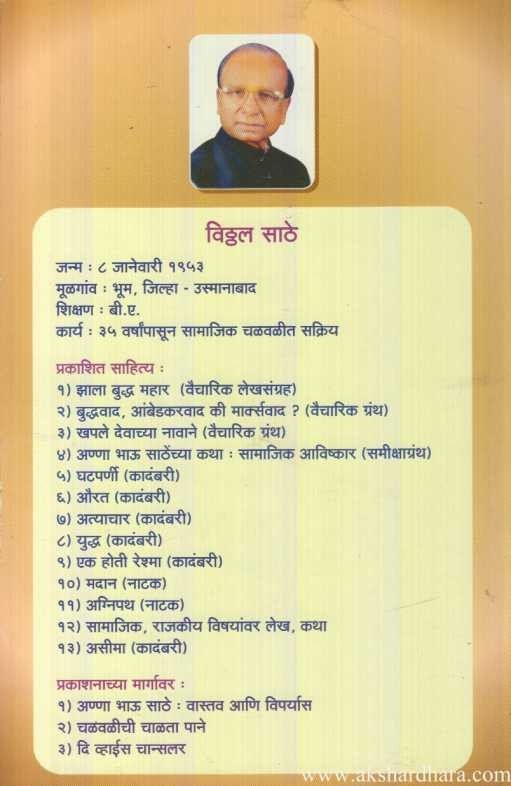 विठ्ठल साठे
जन्म : ८ जानेवारी १९५३
मूळगांव : भूम, जिल्हा - उस्मानाबाद
शिक्षण : बी.ए.
कार्य : ३५ वर्षांपासून सामाजिक चळवळीत सक्रिय
प्रकाशित साहित्य :
१) झाला बुद्ध महार (वैचारिक लेखसंग्रह)
२) बुद्धवाद, आंबेडकरवाद की मार्क्सवाद ? (वैचारिक ग्रंथ)
३) खपले देवाच्या नावाने (वैचारिक ग्रंथ)
४) अण्णा भाऊ साठेंच्या कथा : सामाजिक आविष्कार (समीक्षाग्रंथ)
५) घटपर्णी (कादंबरी)
६) औरत (कादंबरी)
७) अत्याचार (कादंबरी)
८) युद्ध (कादंबरी)
९) एक होती रेश्मा (कादंबरी)
१०) मदान (नाटक)
११) अग्निपथ (नाटक)
१२) सामाजिक, राजकीय विषयांवर लेख, कथा
१३) असीमा (कादंबरी)
प्रकाशनाच्या मार्गावर :
१) अण्णा भाऊ साठे : वास्तव आणि विपर्यास
२) चळवळीची चाळता पाने
३) दि व्हाईस चान्सलर
www.akshardhara.com